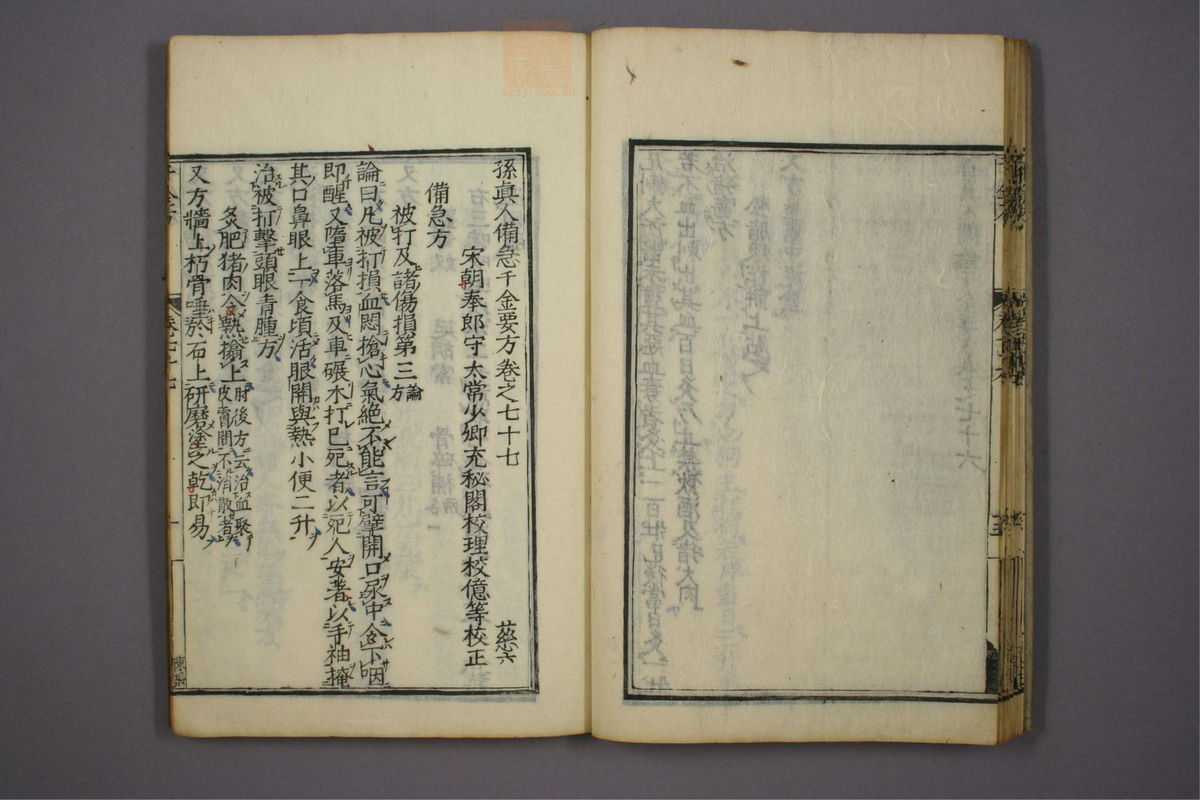 孫真人備急千金要方卷之七十七
慈六
宋朝奉郎守太常少卿充秘閣校理林億等校正
備急方
被打及諸傷損第三 論 方
論曰凡被打損血悶搶心氣絶不能言可擘開口尿中令下咽
即醒又墮車落馬及車碾木打已死者以死人安著以手袖掩
其口鼻眼上一食頃活眼開與熱小便二升
治被打擊頭眼青腫方
炙肥猪肉令熱搨上 肘後方云治血聚皮膚間不消散者
又方牆上朽骨唾於石上研磨塗之乾即易